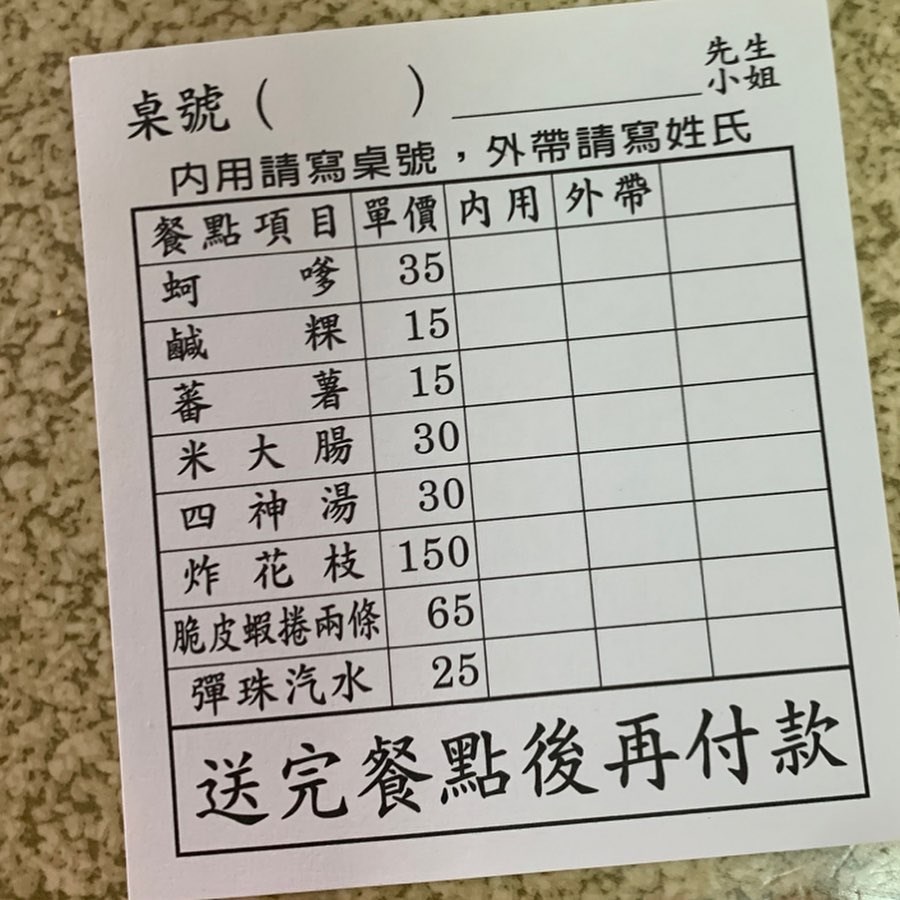 桌號（　　　）＿＿＿＿＿先生
小姐
內用請寫桌號，外帶請寫姓氏
餐點項目 單價 內用 外帶
蚵嗲 35
鹹粿 15
蕃薯 15
米大腸 30
四神湯 30
炸花枝 150
脆皮蝦捲兩條 65
彈珠汽水 25
送完餐點後再付款